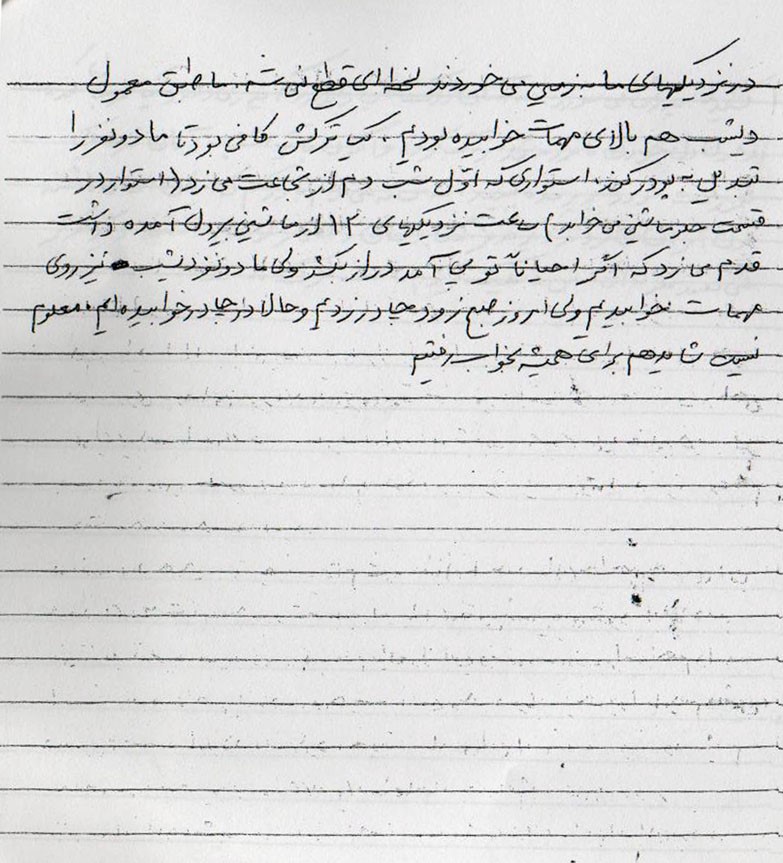 در نزدیکیهای ما به زمین می خوردند لحظه ای قطع نمی شد. ما طبق معمول
دیشب هم بالای مهمات خوابیده بودیم. یک ترکش کافی بود تا ما دو نفر را
تبدیل به پودر کند. استواری که اوّل شب دم از شجاعت می زد (استوار در
قسمت جلو ماشین می خوابد) ساعت نزدیکیهای ۱۲ از ماشین بیرون آمده و داشت
قدم می زد که اگر احیاناً توپی آمد دراز بکشد ولی ما دو نفر دیشب نیز روی
مهمات خوابیدیم ولی امروز صبح زود چادر زدیم و حالا در چادر خوابیده ایم. معلوم
نیست شاید هم برای همیشه بخواب رفتیم